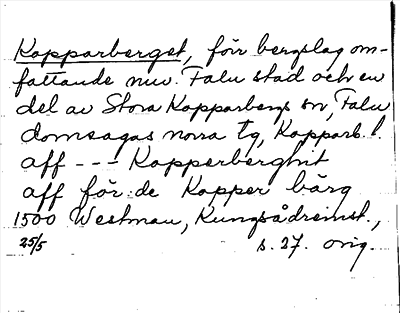 Kopparberget, förr bergslag om-
fattande nuv. Falu stad och en
del av Stora Kopparbergs sn, Falu
domsagas norra tg, Kopparb. l.
aff --- Kopperberghit
aff för:de Kopper bärg
1500 Westman, Kungsådreinst.,
25/5 s. 27. orig.